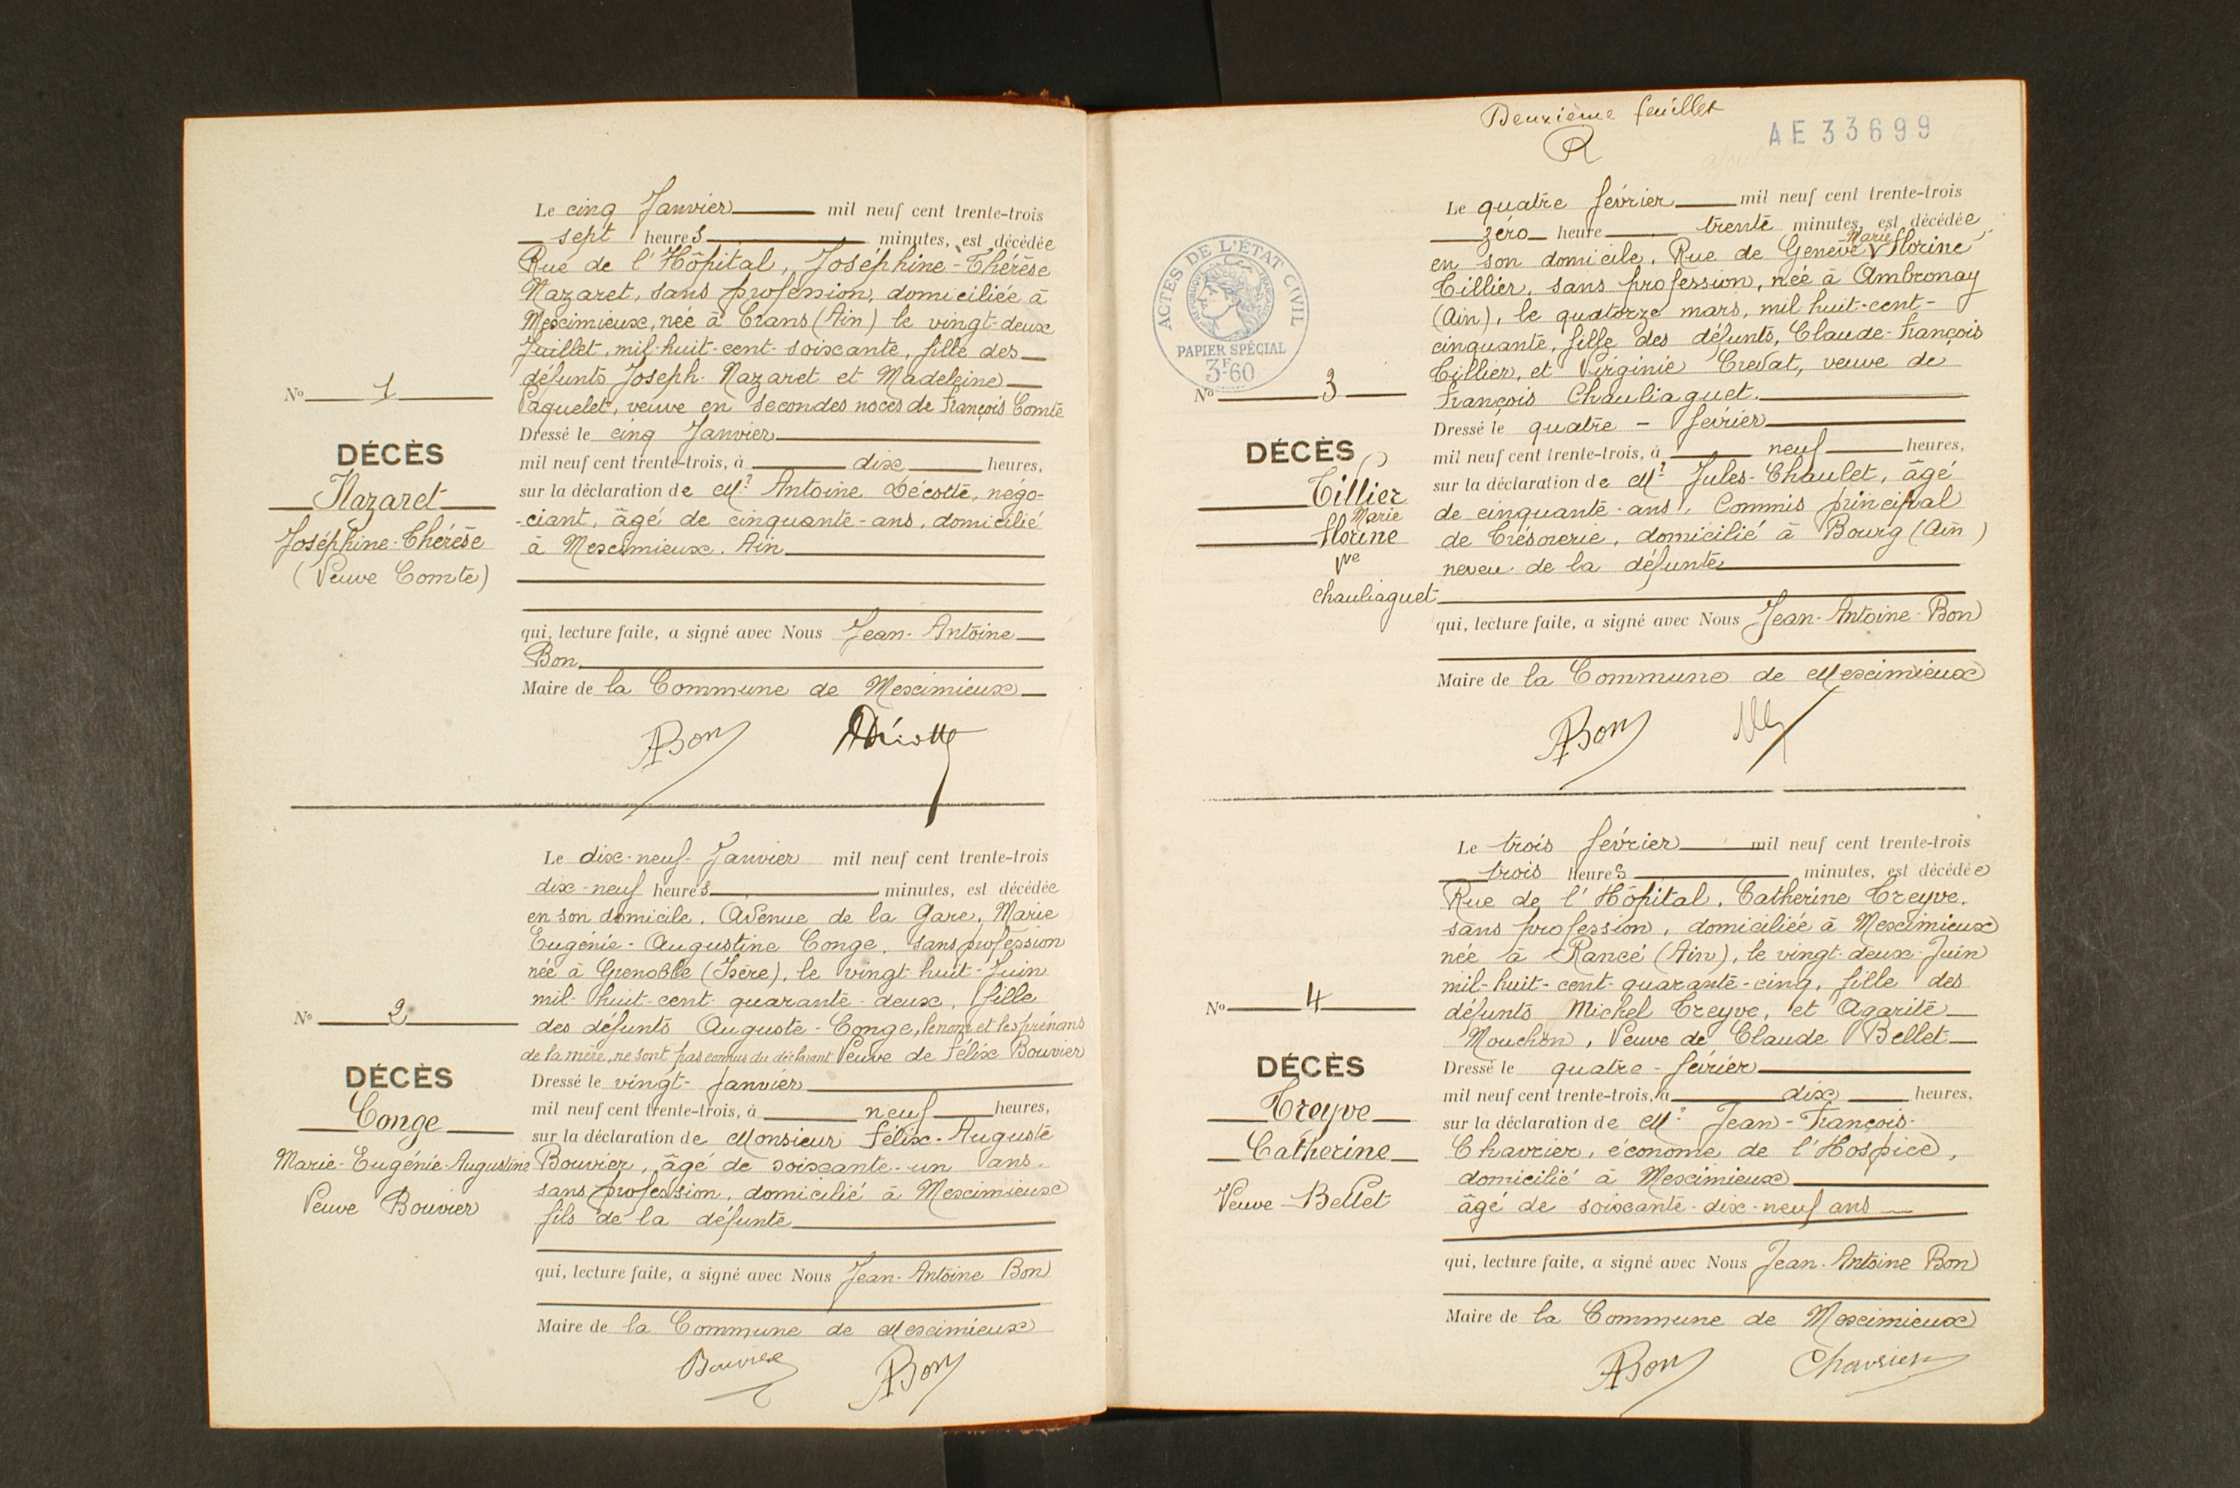 Le cinq Janvier mil neuf cent trente-trois
sept heures minutes, est décédée
Rue de l'Hôpital, Joséphine-Thérèse
Nazaret, sans profession, domiciliée à
Meximieux, née à Crans (Ain) le vingt-deux
Juillet, mil-huit-cent-soixante, fille des
défunts Joseph-Nazaret et Madeleine
Paquelet, veuve en secondes noces de François Comte
Nº 1
DÉCÈS
Nazaret
Joséphine-Thérèse
(Veuve Comte)
Dressé le cinq Janvier
mil neuf cent trente-trois, à dix heures,
sur la déclaration de Mr Antoine Décotte, négo-
-ciant, âgé de cinquante-ans, domicilié
à Meximieux. Ain
qui, lecture faite, a signé avec Nous Jean-Antoine
Bon
Maire de la Commune de Meximieux
ABon ADécotte
Le dix-neuf-Janvier mil neuf cent trente-trois
dix-neuf heures minutes, est décédée
en son domicile. Avenue de la Gare, Marie
Eugénie-Augustine Conge, sans profession
née à Grenoble (Isère), le vingt-huit-Juin
mil-huit-cent-quarante-deux, fille
des défunts Auguste-Conge, le nom et les prénoms
de la mère, ne sont pas connus du déclarant Veuve de Félix Bouvier
Nº 2
DÉCÈS
Conge
Marie-Eugénie-Augustine
Veuve Bouvier
Dressé le vingt-janvier
mil neuf cent trente-trois, à neuf heures,
sur la déclaration de Monsieur Félix-Auguste
Bouvier, âgé de soixante-un ans.
sans profession, domicilié à Meximieux
fils de la défunte
qui, lecture faite, a signé avec Nous Jean-Antoine Bon
Maire de la Commune de Meximieux
Bouvier ABon
Deuxième feuillet
R
AE 33699
ACTES DE L'ÉTAT CIVIL
PAPIER SPÉCIAL
3F60
Le quatre février mil neuf cent trente-trois
zéro heure trente minutes, est décédée
en son domicile, Rue de Genève Marie Florine
Tillier, sans profession, née à Ambronay
(Ain), le quatorze mars, mil huit-cent-
cinquante, fille des défunts, Claude-François
Tillier, et Virginie Crevat, veuve de
François Chauliaguet.
Nº 3
DÉCÈS
Tillier
Marie
Florine
Vve
Chauliaguet
Dressé le quatre - février
mil neuf cent trente-trois, à neuf heures,
sur la déclaration de Mr Jules-Chaulet, âgé
de cinquante-ans, Commis principal
de Trésorerie, domicilié à Bourg (Ain)
neveu de la défunte
qui, lecture faite, a signé avec Nous Jean-Antoine-Bon
Maire de la Commune de Meximieux
ABon
Le trois février mil neuf cent trente-trois
trois heures minutes, est décédée
Rue de l'Hôpital, Catherine Treyve,
sans profession, domiciliée à Meximieux
née à Rancé (Ain), le vingt-deux-Juin
mil-huit-cent-quarante-cinq, fille des
défunts Michel Treyve, et Agarite
Mouchon, Veuve de Claude Bellet
Nº 4
DÉCÈS
Treyve
Catherine
Veuve-Bellet
Dressé le quatre-février
mil neuf cent trente-trois, à dix heures,
sur la déclaration de Mr Jean-François-
Chavrier, économe de l'Hospice,
domicilié à Meximieux
âgé de soixante-dix-neuf ans
qui, lecture faite, a signé avec Nous Jean-Antoine Bon
Maire de la Commune de Meximieux
ABon Chavrier